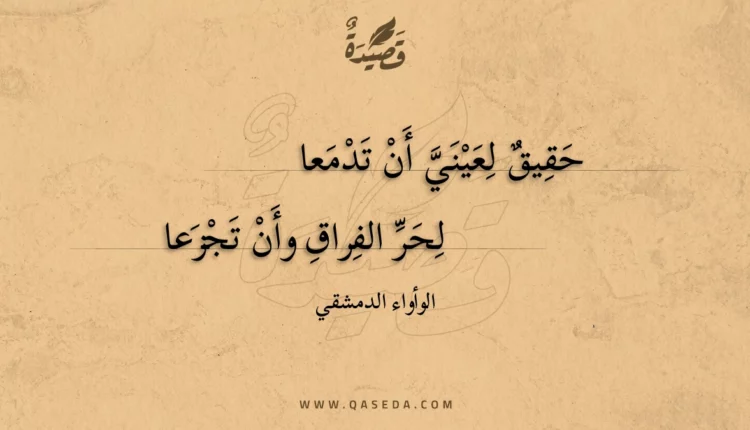 قَصِيدَةٌ
حَقِيقٌ لِعَيْنَيَّ أَنْ تَدْمَعا
لِحَرِّ الفِراقِ وأَنْ تَجْزَعا
الوأواء الدمشقي
WWW.QASEDA.COM